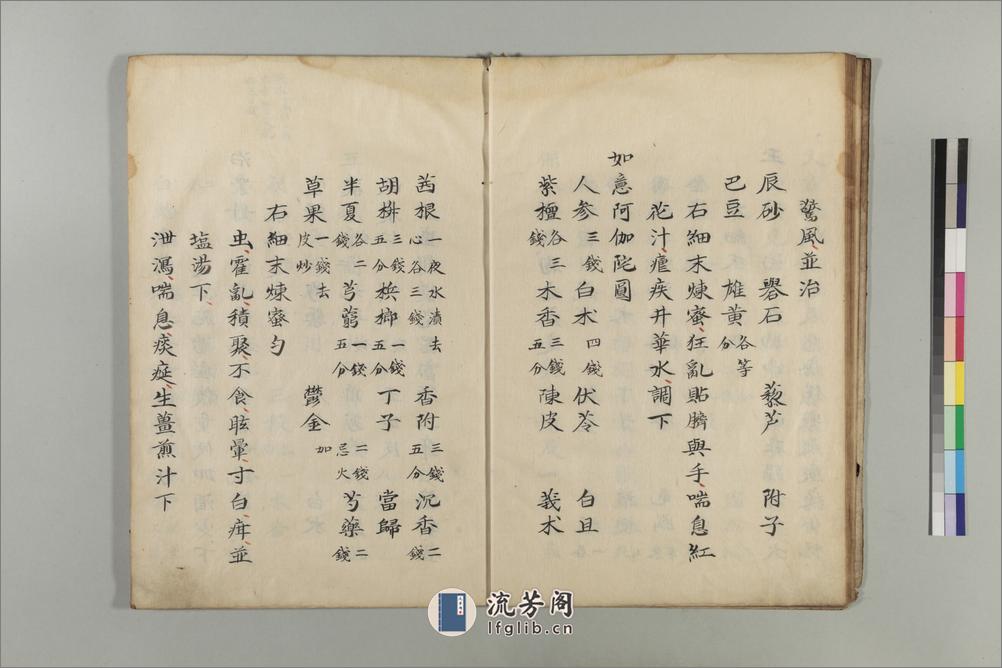 驚風並治
辰砂 礜石 藜芦 附子
巴豆 雄黄各等分
右細末煉蜜狂亂貼臍與手喘息紅
花汁瘧疾井華水調下
如意阿伽陀圓
人参三錢 白朮四錢 伏苓 白且
紫檀各三錢 木香三錢五分 陳皮 莪朮
茜根一夜水漬去心各三錢 香附三錢五分 沉香二錢
胡椒三錢五分 梹榔一錢五分 丁子 當歸
半夏各二錢 芎藭一錢五分 鬱金二錢忌火 芍藥二錢
草果一錢去皮炒 加
右細末煉蜜勻
虫霍亂積聚不食眩暈寸白疰並
塩湯下
泄瀉喘息痰疰生薑煎汁下
流芳阁
lfglib.cn